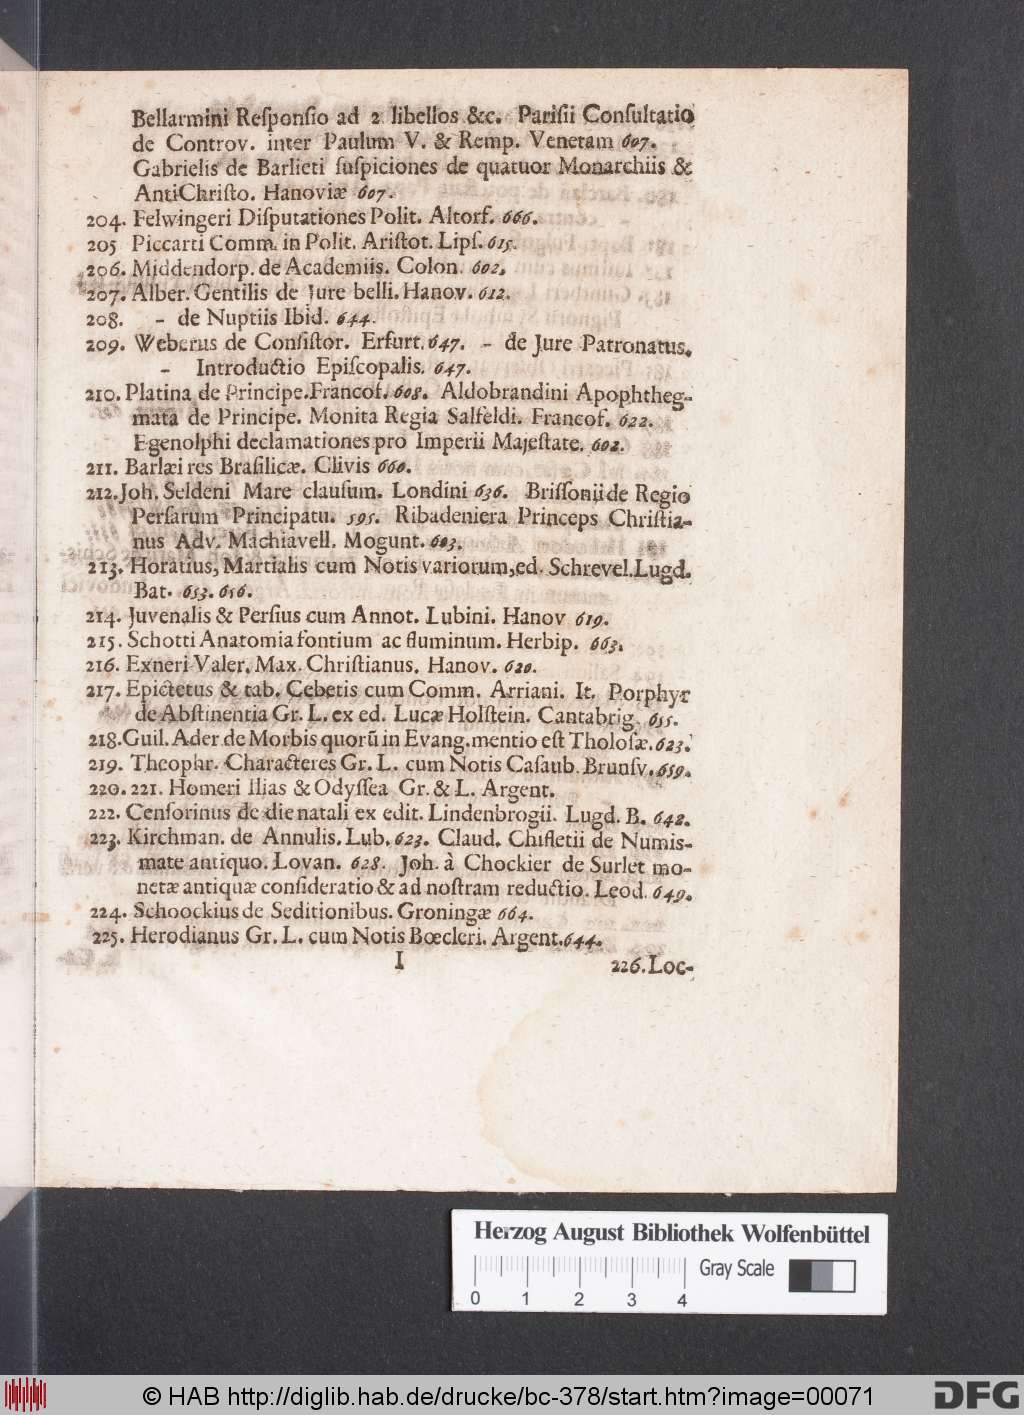 Bellarmini Reſponſio ad 2 libellos &c. Pariſii Conſultatio
de Controv. inter Paulum V. & Remp. Venetam 607.
Gabrielis de Barlieti ſuſpiciones de quatuor Monarchiis &
AntiChriſto. Hanoviæ 607.
204. Felwingeri Diſputationes Polit. Altorf. 666.
205 Piccarti Comm. in Polit. Ariſtot. Lipſ. 615.
206. Middendorp. de Academiis. Colon. 602.
207. Alber. Gentilis de Jure belli. Hanov. 612.
208. - de Nuptiis Ibid. 644.
209. Weberus de Conſiſtor. Erfurt. 647. - de Jure Patronatus.
- Introductio Epiſcopalis. 647.
210. Platina de Principe. Francof. 608. Aldobrandini Apophtheg-
mata de Principe. Monita Regia Salfeldi. Francof. 622.
Egenolphi declamationes pro Imperii Majeſtate. 602.
211. Barlæi res Braſilicæ. Clivis 660.
212. Joh. Seldeni Mare clauſum. Londini 636. Briſſonii de Regio
Perſarum Principatu. 595. Ribadeniera Princeps Chriſtia-
nus Adv. Machiavell. Mogunt. 603.
213. Horatius, Martialis cum Notis variorum, ed. Schrevel. Lugd.
Bat. 653. 656.
214. Juvenalis & Perſius cum Annot. Lubini. Hanov 619.
215. Schotti Anatomia fontium ac fluminum. Herbip. 663.
216. Exneri Valer. Max. Chriſtianus. Hanov. 620.
217. Epictetus & tab. Cebetis cum Comm. Arriani. It. Porphyr
de Abſtinentia Gr. L. ex ed. Lucæ Holſtein. Cantabrig. 655.
218. Guil. Ader de Morbis quorū in Evang. mentio eſt Tholoſæ. 623.
219. Theophr. Characteres Gr. L. cum Notis Caſaub. Brunſv. 659.
220. 221. Homeri Ilias & Odyſſea Gr. & L. Argent.
222. Cenſorinus de die natali ex edit. Lindenbrogii. Lugd. B. 642.
223. Kirchman. de Annulis. Lub. 623. Claud. Chifletii de Numis-
mate antiquo. Lovan. 628. Joh. à Chockier de Surlet mo-
netæ antiquæ conſideratio & ad noſtram reductio. Leod. 649.
224. Schoockius de Seditionibus. Groningæ 664.
225. Herodianus Gr. L. cum Notis Bœcleri. Argent. 644.
I 226. Loc-
Herzog August Bibliothek Wolfenbüttel
Gray Scale
0 1 2 3 4
© HAB http://diglib.hab.de/drucke/bc-378/start.htm?image=00071
DFG